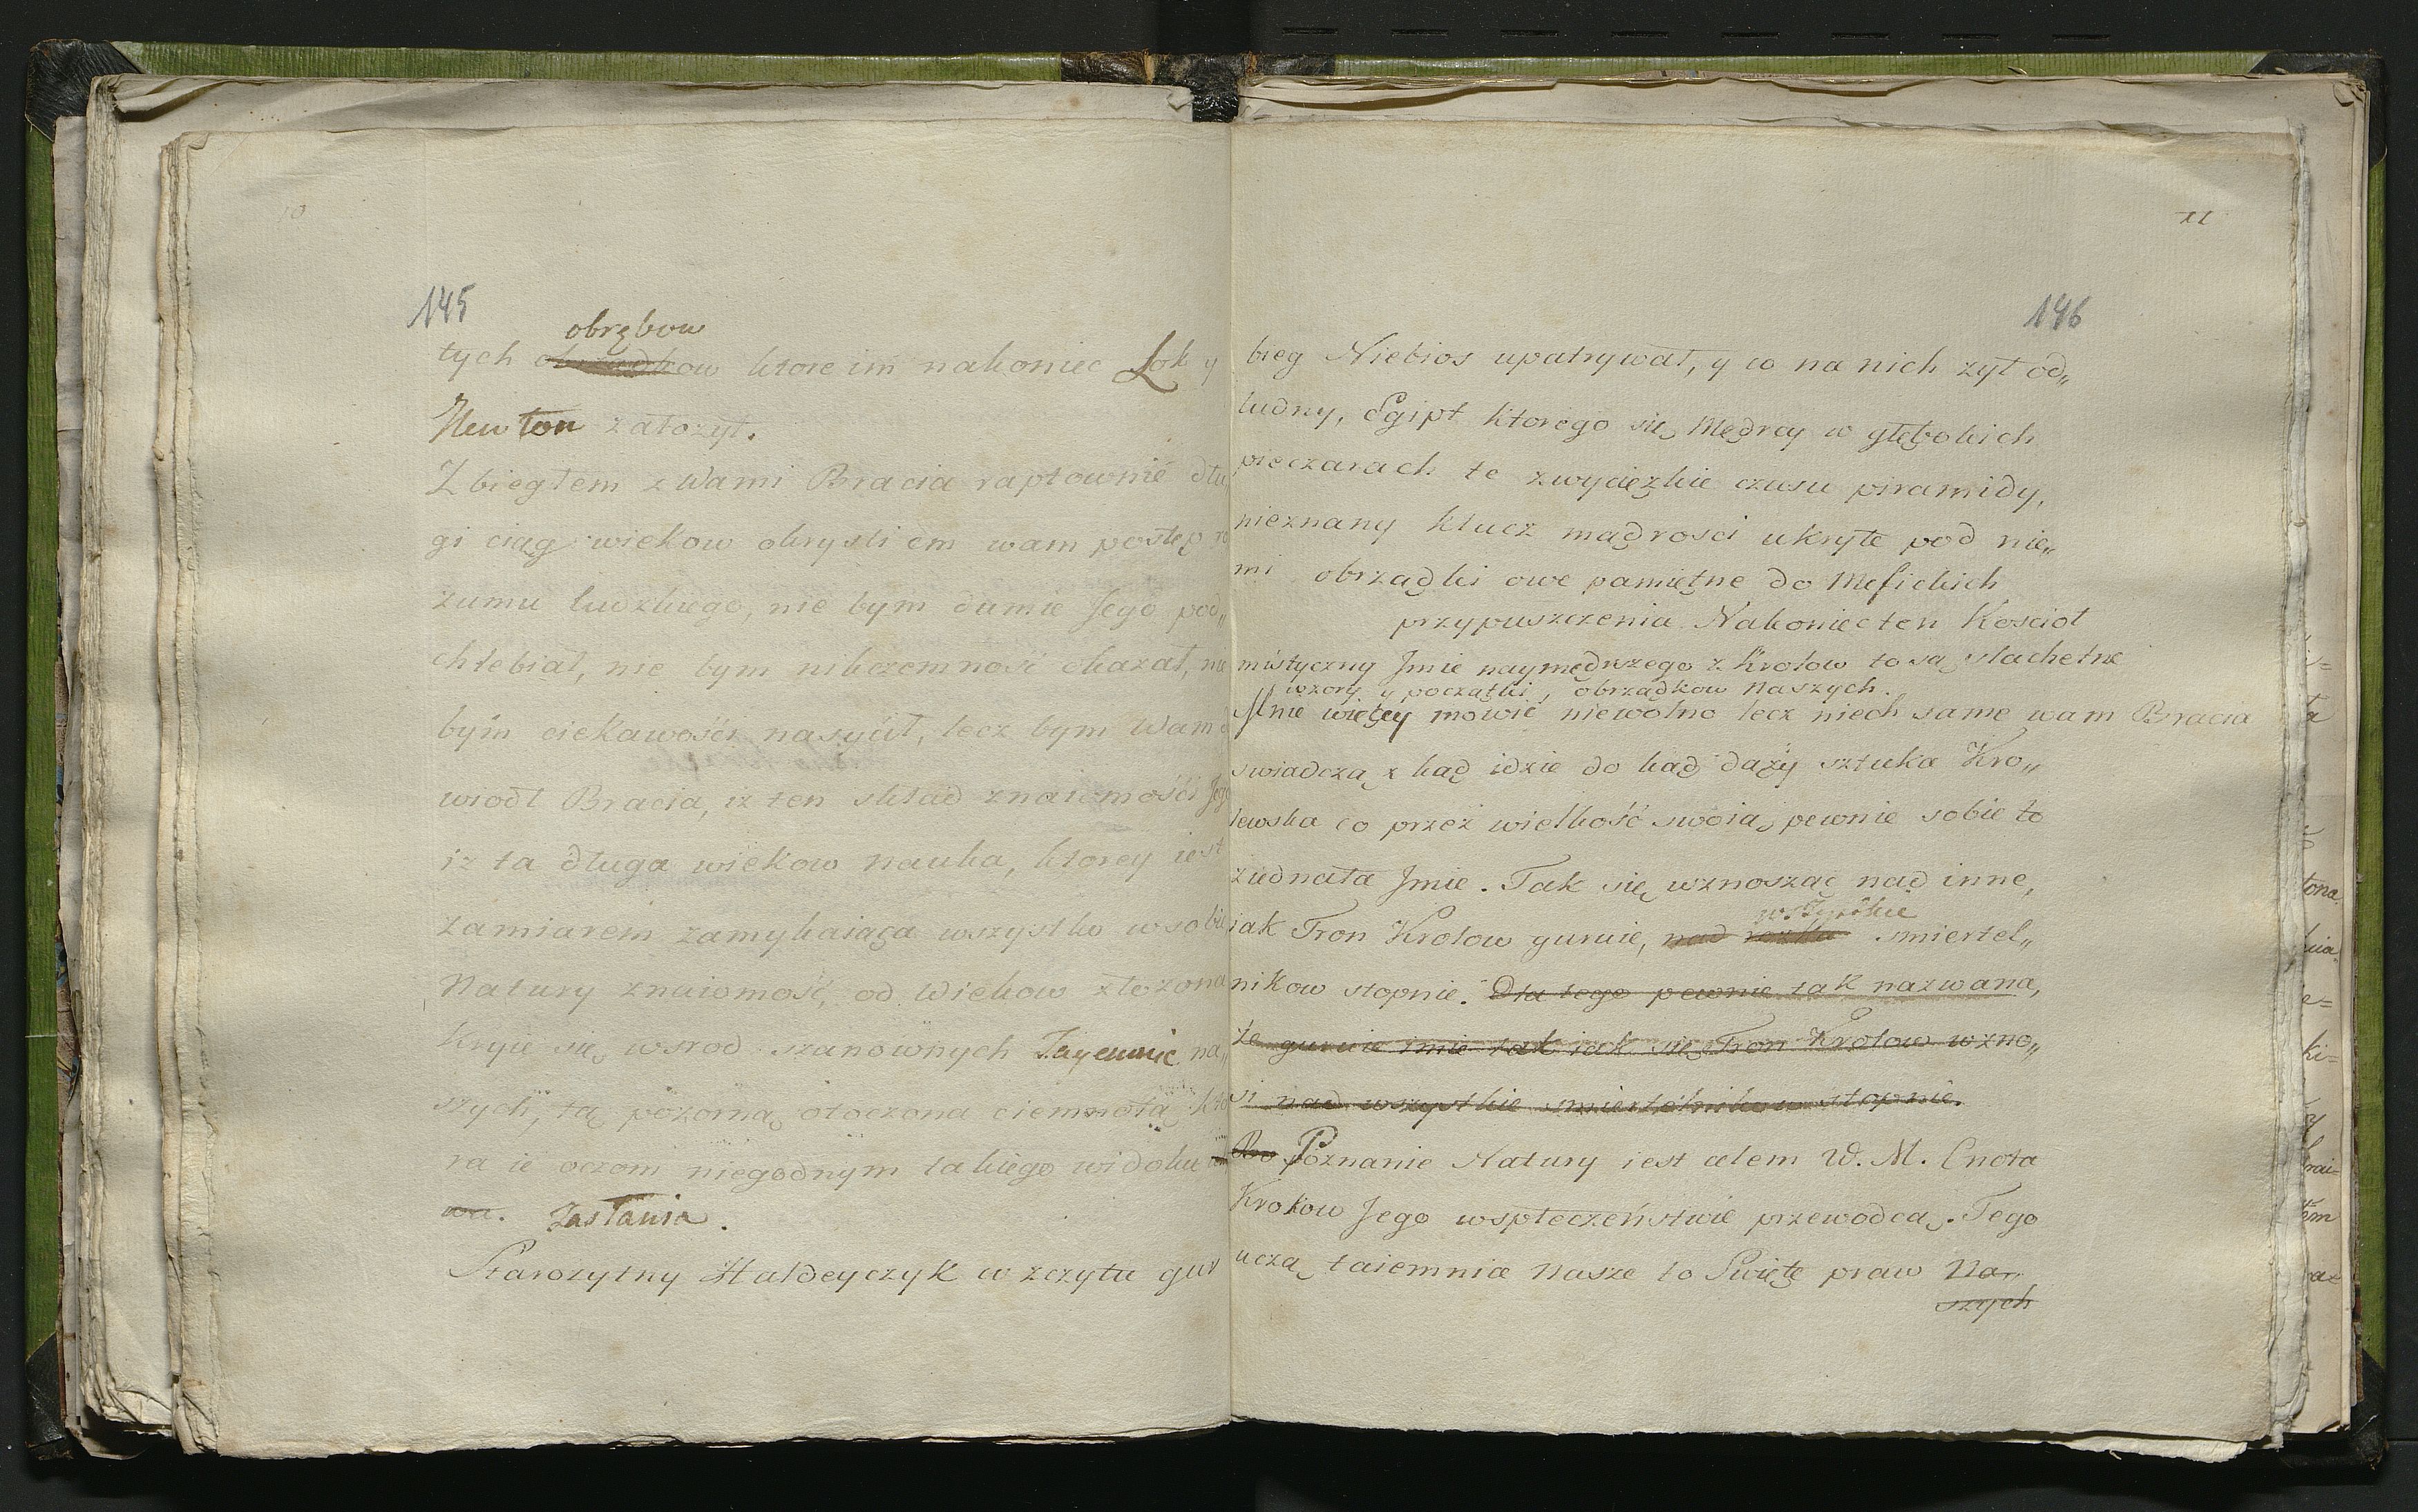 10
145
obrębow
tych obrządkow ktore im nakoniec Lok y
Newton założył.
Zbiegłem z Wami Bracia raptownie dłu
gi ciąg wiekow okrysliłem wam postęp ro
zumu ludzkiego, nie bym dumie Jego pod„
chlebiał, nie bym nikczemność okazał, nie
bym ciekawość nasycił, lecz bym Wam
wiodł Bracia, iż ten skład znaiomości Jego
iż ta długa wiekow nauka, ktorey iest
zamiarem zamykaiąca wszystko w sobie
Natury znaiomość, od Wiekow złożona
kryie się wsrod szanownych Tayemnic na„
szych, tą pozorną otoczona ciemnotą kto
ra ie oczom niegodnym takiego widoku
wa. zasłania.
Starożytny Haldeyczyk w szczytu gur
11
146
bieg Niebios upatrywał, y co na nich żył od„
ludny, Egipt ktorego się Mędrcy w głębokich
pieczarach te zwycięzkie czasu piramidy,
nieznany klucz mądrosci ukryte pod nie„
mi obrządki owe pamiętne do Mefickich
przypuszczenia Nakoniec ten Kościoł
mistyczny Jmie naymędrszego z Krolow to są slachetne
wzory y początki, obrządkow Naszych.
Mnie więcey mowić niewolno lecz niech same wam Bracia
swiadczą z kąd idzie do kąd dąży sztuka Kro„
lewska co przez wielkość swoią pewnie sobie to
ziednała Jmie. Tak się wznosząc nad inne,
wszystkie
iak Tron Krolow guruie, nad smiertel„
nikow stopnie. Dla tego pewnie tak nazwana,
że guruie inne tak iak się Tron Krolow wzno„
si nad wszystkie smiertelnikow stopnie.
Poznanie Natury iest celem W. M. Cnota
Krokow Jego wspłeczeństwie przewodcą. Tego
uczą taiemnice Nasze to Swięte praw Na„
szych